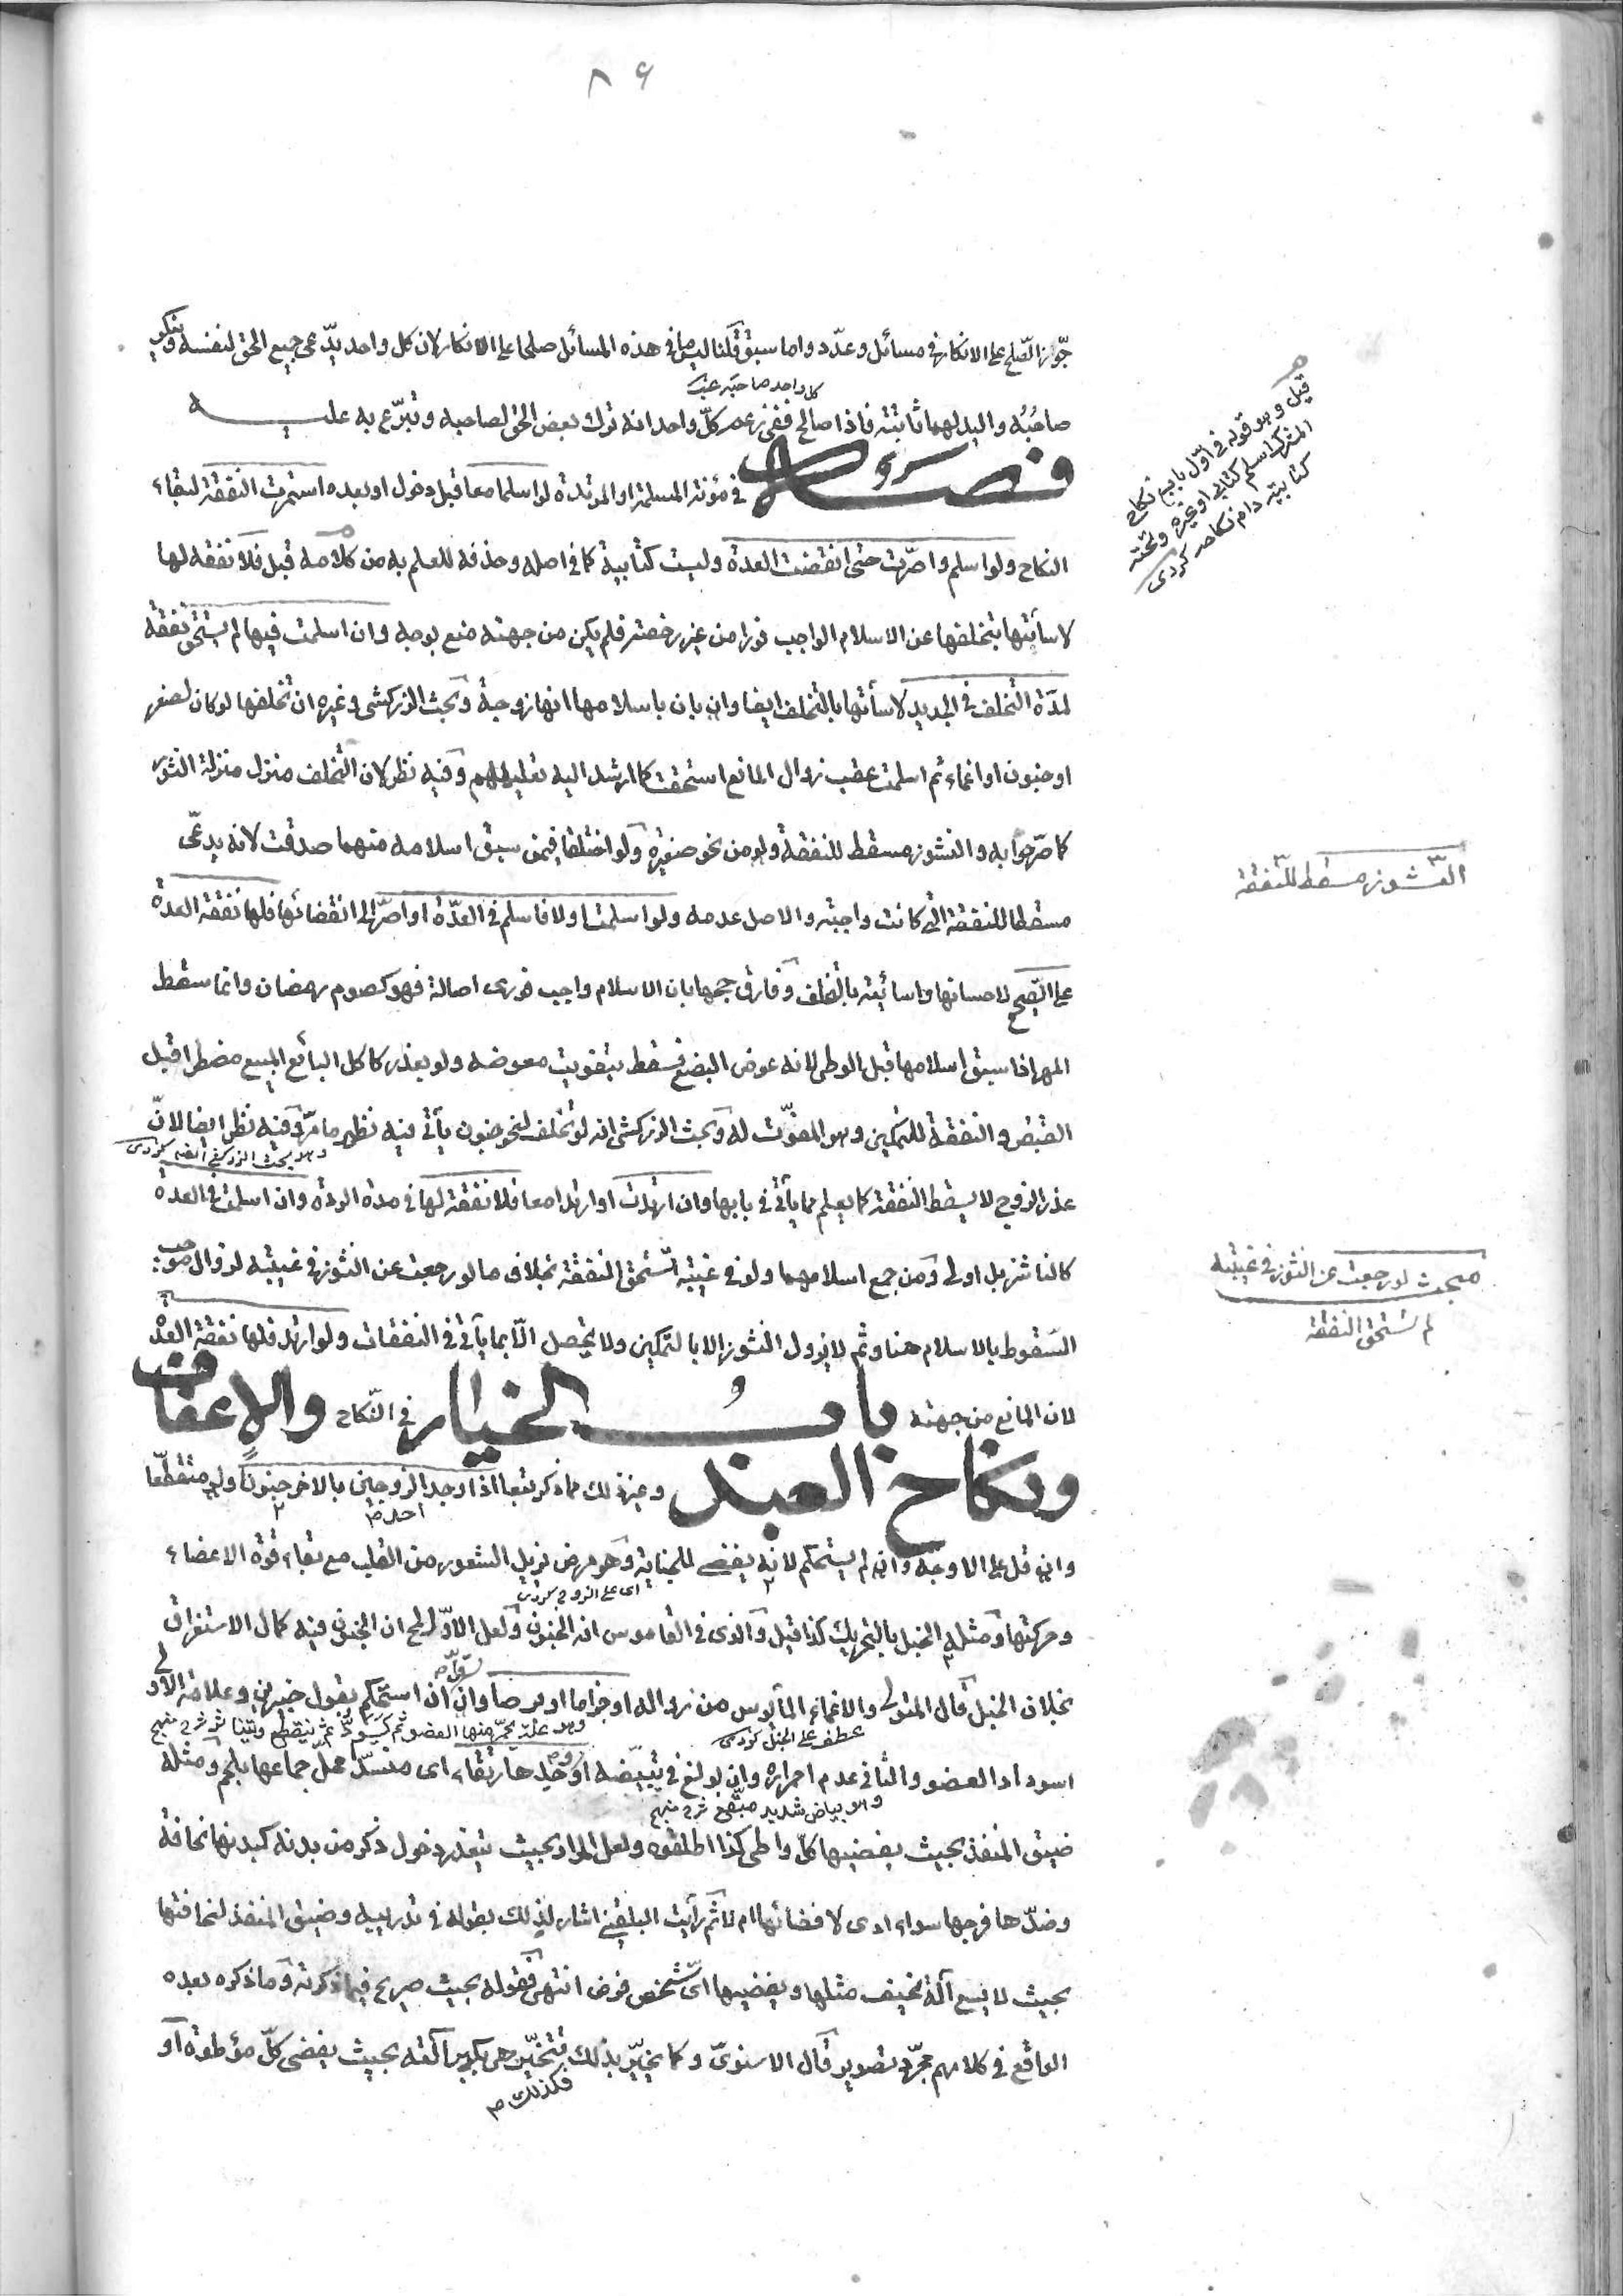 ٨٦
جوّاز الصّلح على الانكار في مسائل وعدّد واما سبق قلنا ليس ما في هذه المسائل صلحا على الانكار لان كل واحد يدّعى جميع الحق لنفسه وينكر
كل واحد صاحبه
صاحبُه واليد لهما ثابتة فاذا صالح ففى زعمه كلّ واحد انه ترك بعض الحق لصاحبه وتبرّع به عليه
فصل في مؤنة المسلمة او المرتدة لو اسلما معا قبل دخول او بعده استمرت النفقة لبقاء
النكاح ولو اسلم واصرّت حتى انقضت العدة وليست كتابية كما في اصله وحذفه للعلم به من كلامه قبل فلا نفقة لها
لاسائتها بتخلفها عن الاسلام الواجب فورا من غير رخصة فلم يكن من جهته منع بوجه وان اسلمت فيها لم يستحق نفقة
لمدة التخلف في الجديد لاسأتها بالتخلف ايضا وان بان باسلامها انها زوجة وبحث الزركشى وغيره ان تخلفها لو كان لصغر
او جنون او اغماء ثم اسلمت عقب زوال المانع استحقت كما ارشد اليه تعليلهم وفيه نظر لان التخلف منزل منزلة النشوز
كما صرّحوا به والنشوز مسقط للنفقة ولو من نحو صغيرة ولو اختلفا فيمن سبق اسلامه منهما صدقت لانه يدعّى
مسقطا للنفقة التى كانت واجبة والاصل عدمه ولو اسلمت اولا فاسلم في العدّة او اصرّ الى انقضائها فلها نفقة العدة
على الصّحيح لاحسانها واسائته بالتخلف وفارق حجها بان الاسلام واجب فورى اصالة فهو كصوم رمضان وانما سقط
المهر اذا سبق اسلامها قبل الوطى لانه عوض البضع فسقط بتفويت معوضه ولو بعذر كاكل البائع المبيع مضطرا قبل
القبض والنفقة للتمكين وهو المفوّت له وبحث الزركشى انه لو تخلف لنحو جنون يأتى فيه نظير ما مرّ وفيه نظر ايضا لانّ
وهو بحث الزركشى آنفا كردى
عذر الزوج لا يسقط النفقة كما يعلم مما يأتى في بابها وان ارتدت او ارتدا معا فلا نفقة لها في مدة الردة وان اسلمت في العدة
كالناشز بل اولى ومن جمع اسلامهما ولو في غيبته تستحق النفقة بخلاف ما لو رجعت عن النشوز في غيبته لزوال موجب
السّقوط بالاسلام هنا وثم لا يزول النشوز الا بالتمكين ولا يحصل الّا بما يأتى في النفقات ولو ارتد فلها نفقة العدة
لان المانع من جهته بابُ الخيار في النّكاح والاعفاف
ونكاح العبد وغير ذلك مما ذكر تبعا اذا وجد الزوجين بالاخر جنونا ولو متقطّعا
احد
وان قل على الاوجه وان لم يستحكم لانه يفضى للجناية وهو مرض يزيل الشعور من القلب مع بقاء قوة الاعضاء
اى على الزوج كردى
وحركتها ومثله الخبل بالتحريك كذا قيل والذى في القاموس انه الجنون ولعل الاوّل لمح ان الجنون فيه كمال الاستغراق
بخلاف الخبل قال المتولى والاغماء المأيوس من زواله او جذاما او برصا وان استحكم بقول خبيرين وعلامة الاول
عطف على الخبل كردى
وهو علة يحمرّ منها العضو ثم يسودّ ثم ينقطع ويتناثر شرح منهج
اسوداد العضو والثانى عدم احمراره وان بولغ في تبيّضه او وجدها رتقاء اى منسدّ محلّ جماعها بلحم ومثله
وهو بياض شديد مبقّع شرح منهج
ضيق المنفذ بحيث يفضيها كلّ واطى كذا اطلقوه ولعل المراد بحيث يتعذر دخول ذكر من بدنه كبدنها نحافة
وضدّها فرجها سواء ادى لافضائها ام لا ثم رأيت البلقينى اشار لذلك بقوله في تدريبه وضيق المنفذ لنحافتها
بحيث لا يسع آلة نحيف مثلها ويفضيها اىّ شخص فرض انتهى فقوله بحيث صريح فيما ذكرته وما ذكره بعده
الواقع في كلامهم مجرّد تصوير قال الاسنوىّ وكما يخيّر بذلك تتخيّر هى بكبر آلته بحيث يفضى كلّ موطوءة او
فكذلك
قيل وهو قوله في اوّل باب نكاح
المشرك اسلم كتابى او غيره وتحته
كتابية دام نكاحه كردى
النّشوز مسقط للنّفقة
مبحث لو رجعت عن النشوز في غيبته
لم تستحق النفقة